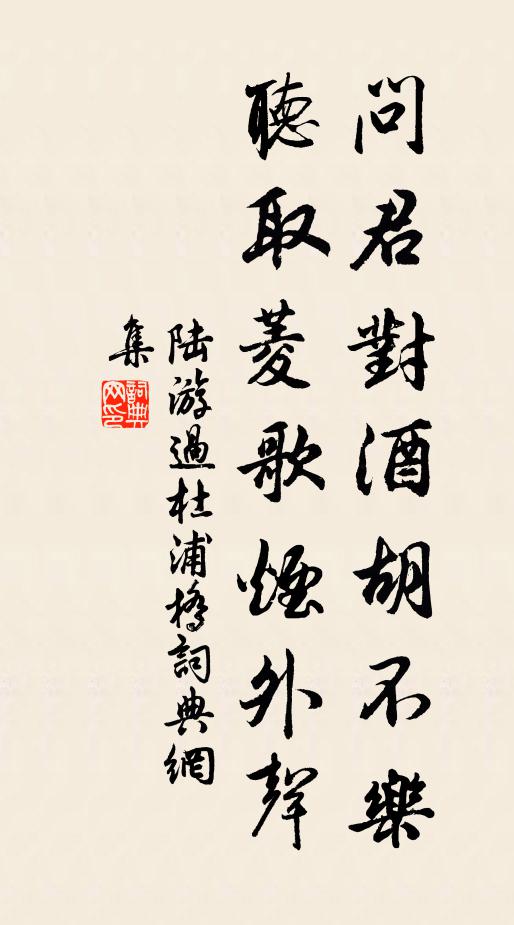 問君對酒胡不樂
聽取菱歌煙外聲
陸游過杜浦橋詞典網
集
詞典
网印